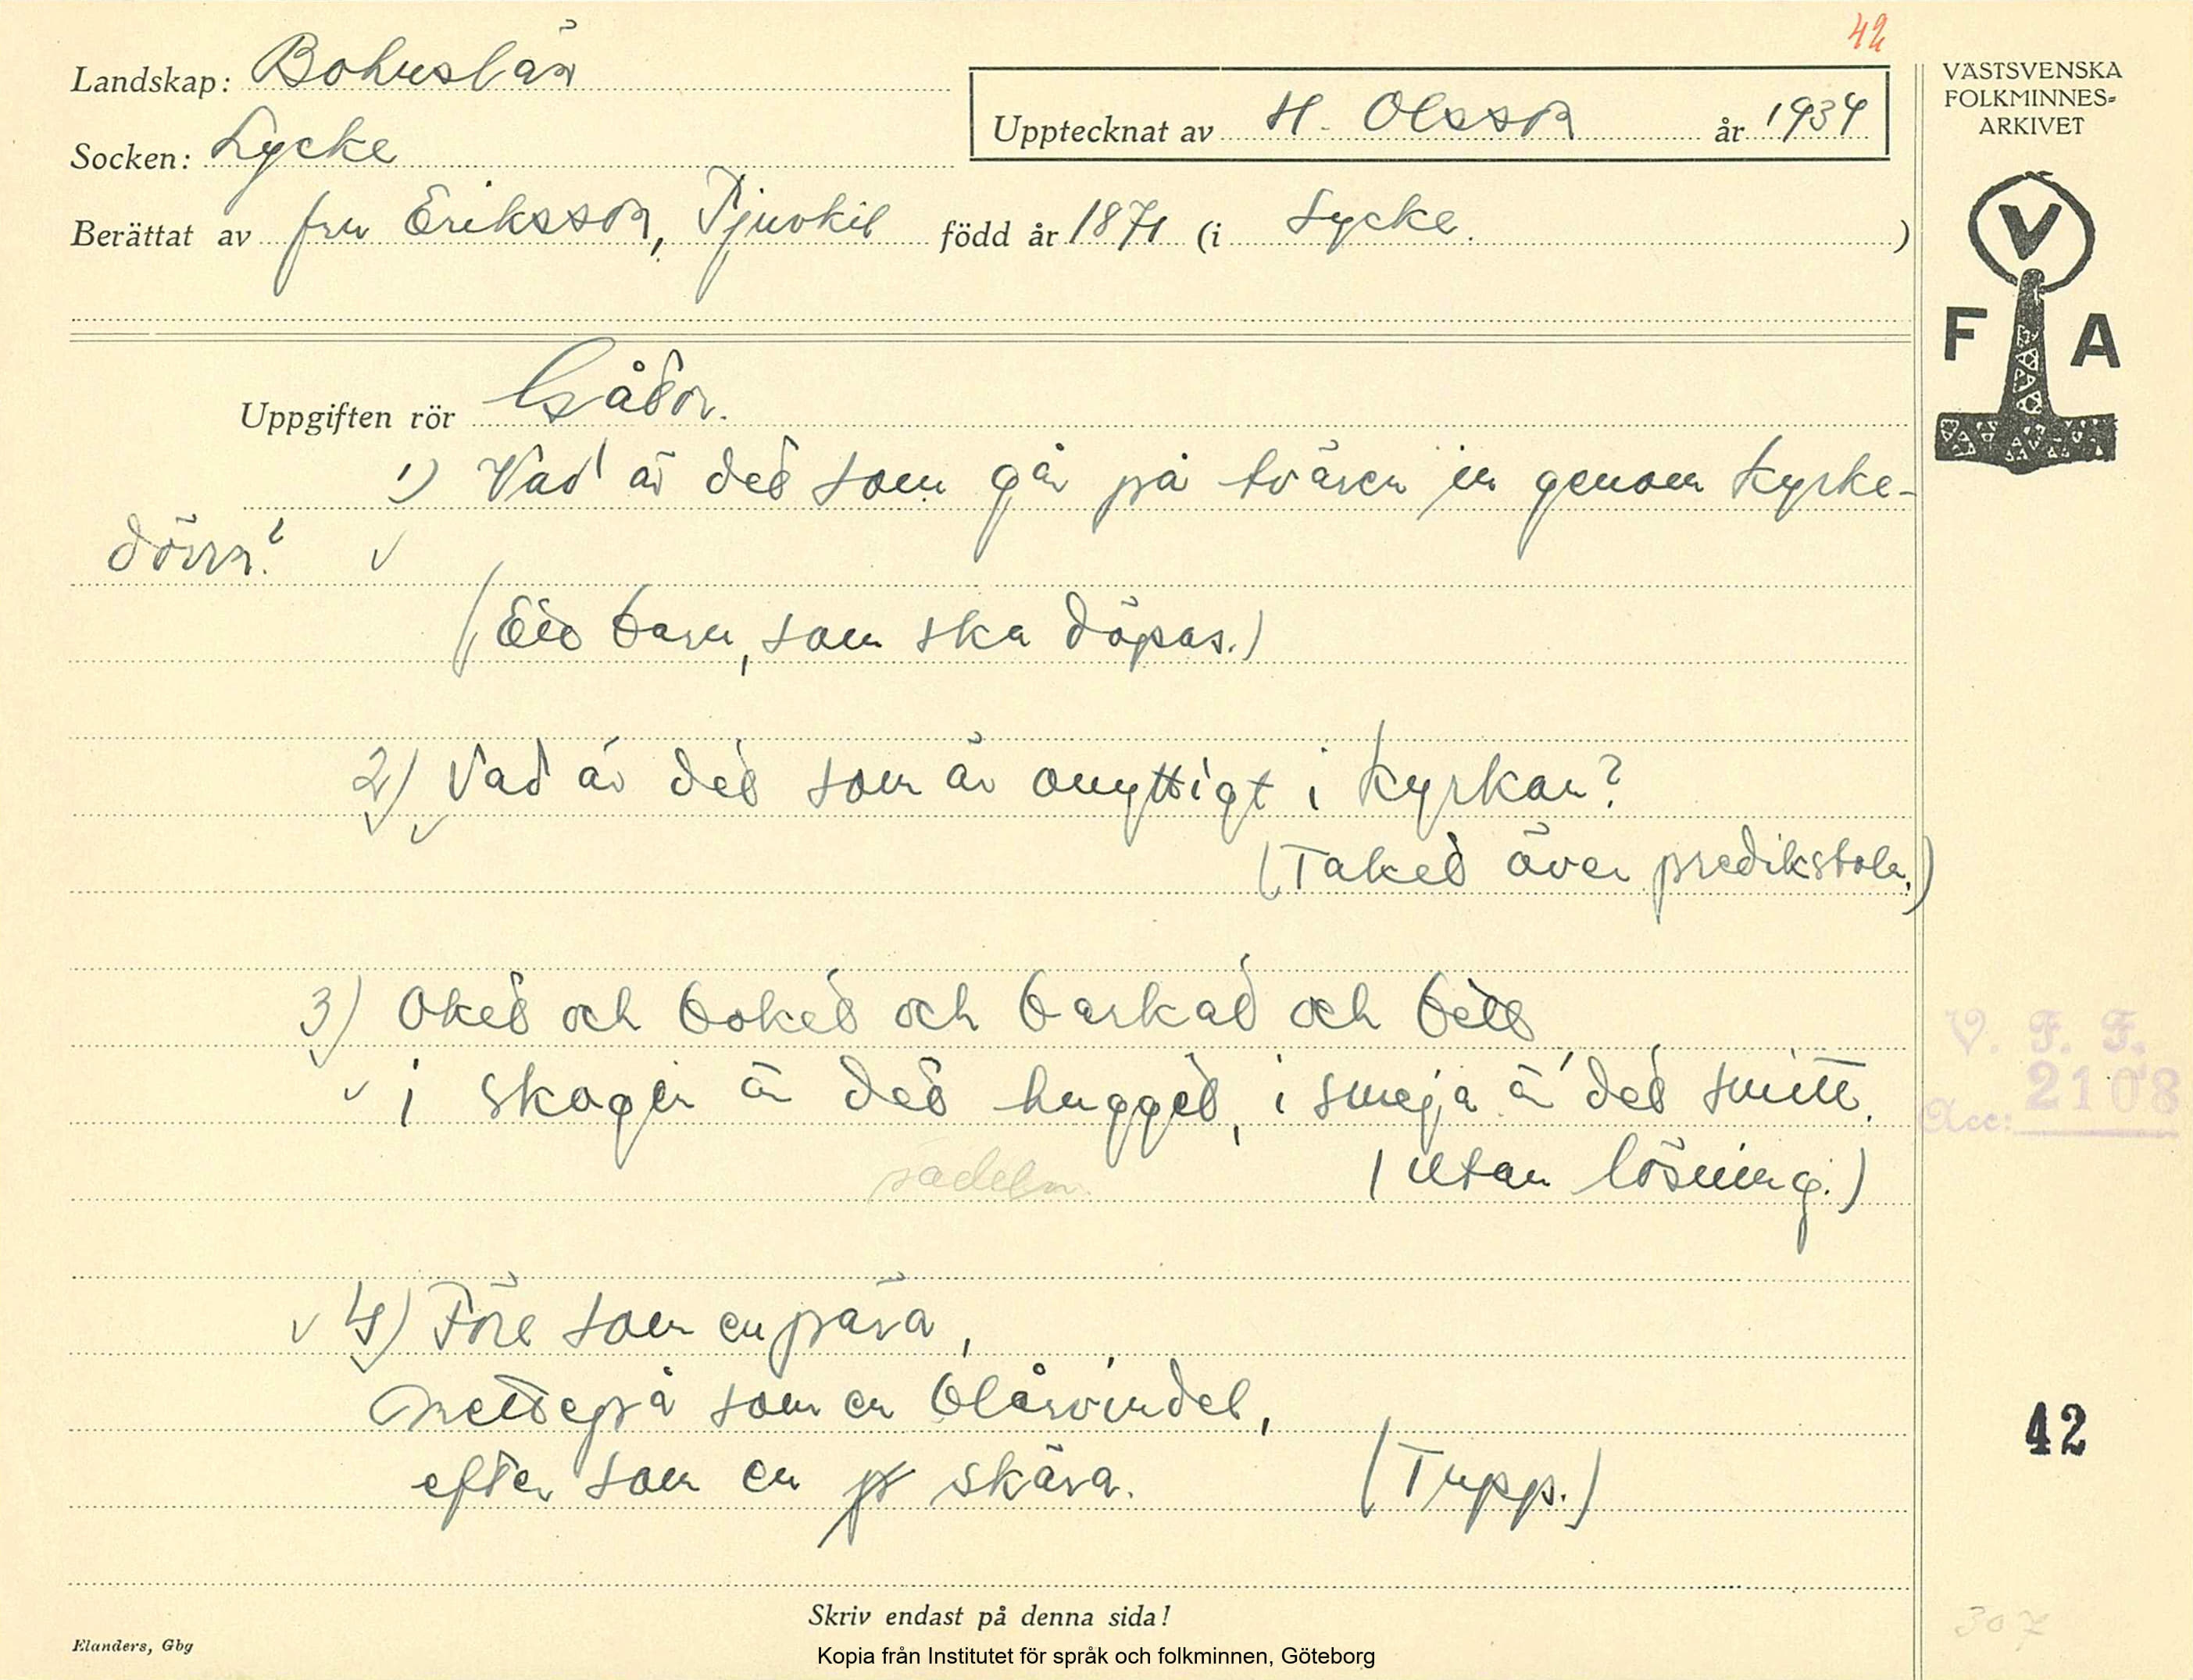 42
Landskap: Bohuslän
VÄSTSVENSKA
FOLKMINNES-
ARKIVET
Upptecknat av H. Olsson år 1934
Socken: Lycke
Berättat av fru Eriksson, Tjuvkil född år 1871 (i Lycke.)
V
F A
Uppgiften rör Gåtor.
1) Vad är det som går på tvären in genom kyrke-
dörrn?
(Ett barn, som ska döpas.)
2) Vad är det som är onyttigt i kyrkan?
(Taket över predikstoln.)
3) Oket och boket och barkat och bett
i skogen är det hugget, i smeja är det smitt.
sadeln.
(Utan lösning.)
V. F. F.
Acc: 2108
4) Före som en pära,
mettepå som en blårvindel,
42
efter som en skära. (Tupp.)
Skriv endast på denna sida!
307
Elanders, Gbg
Kopia från Institutet för språk och folkminnen, Göteborg